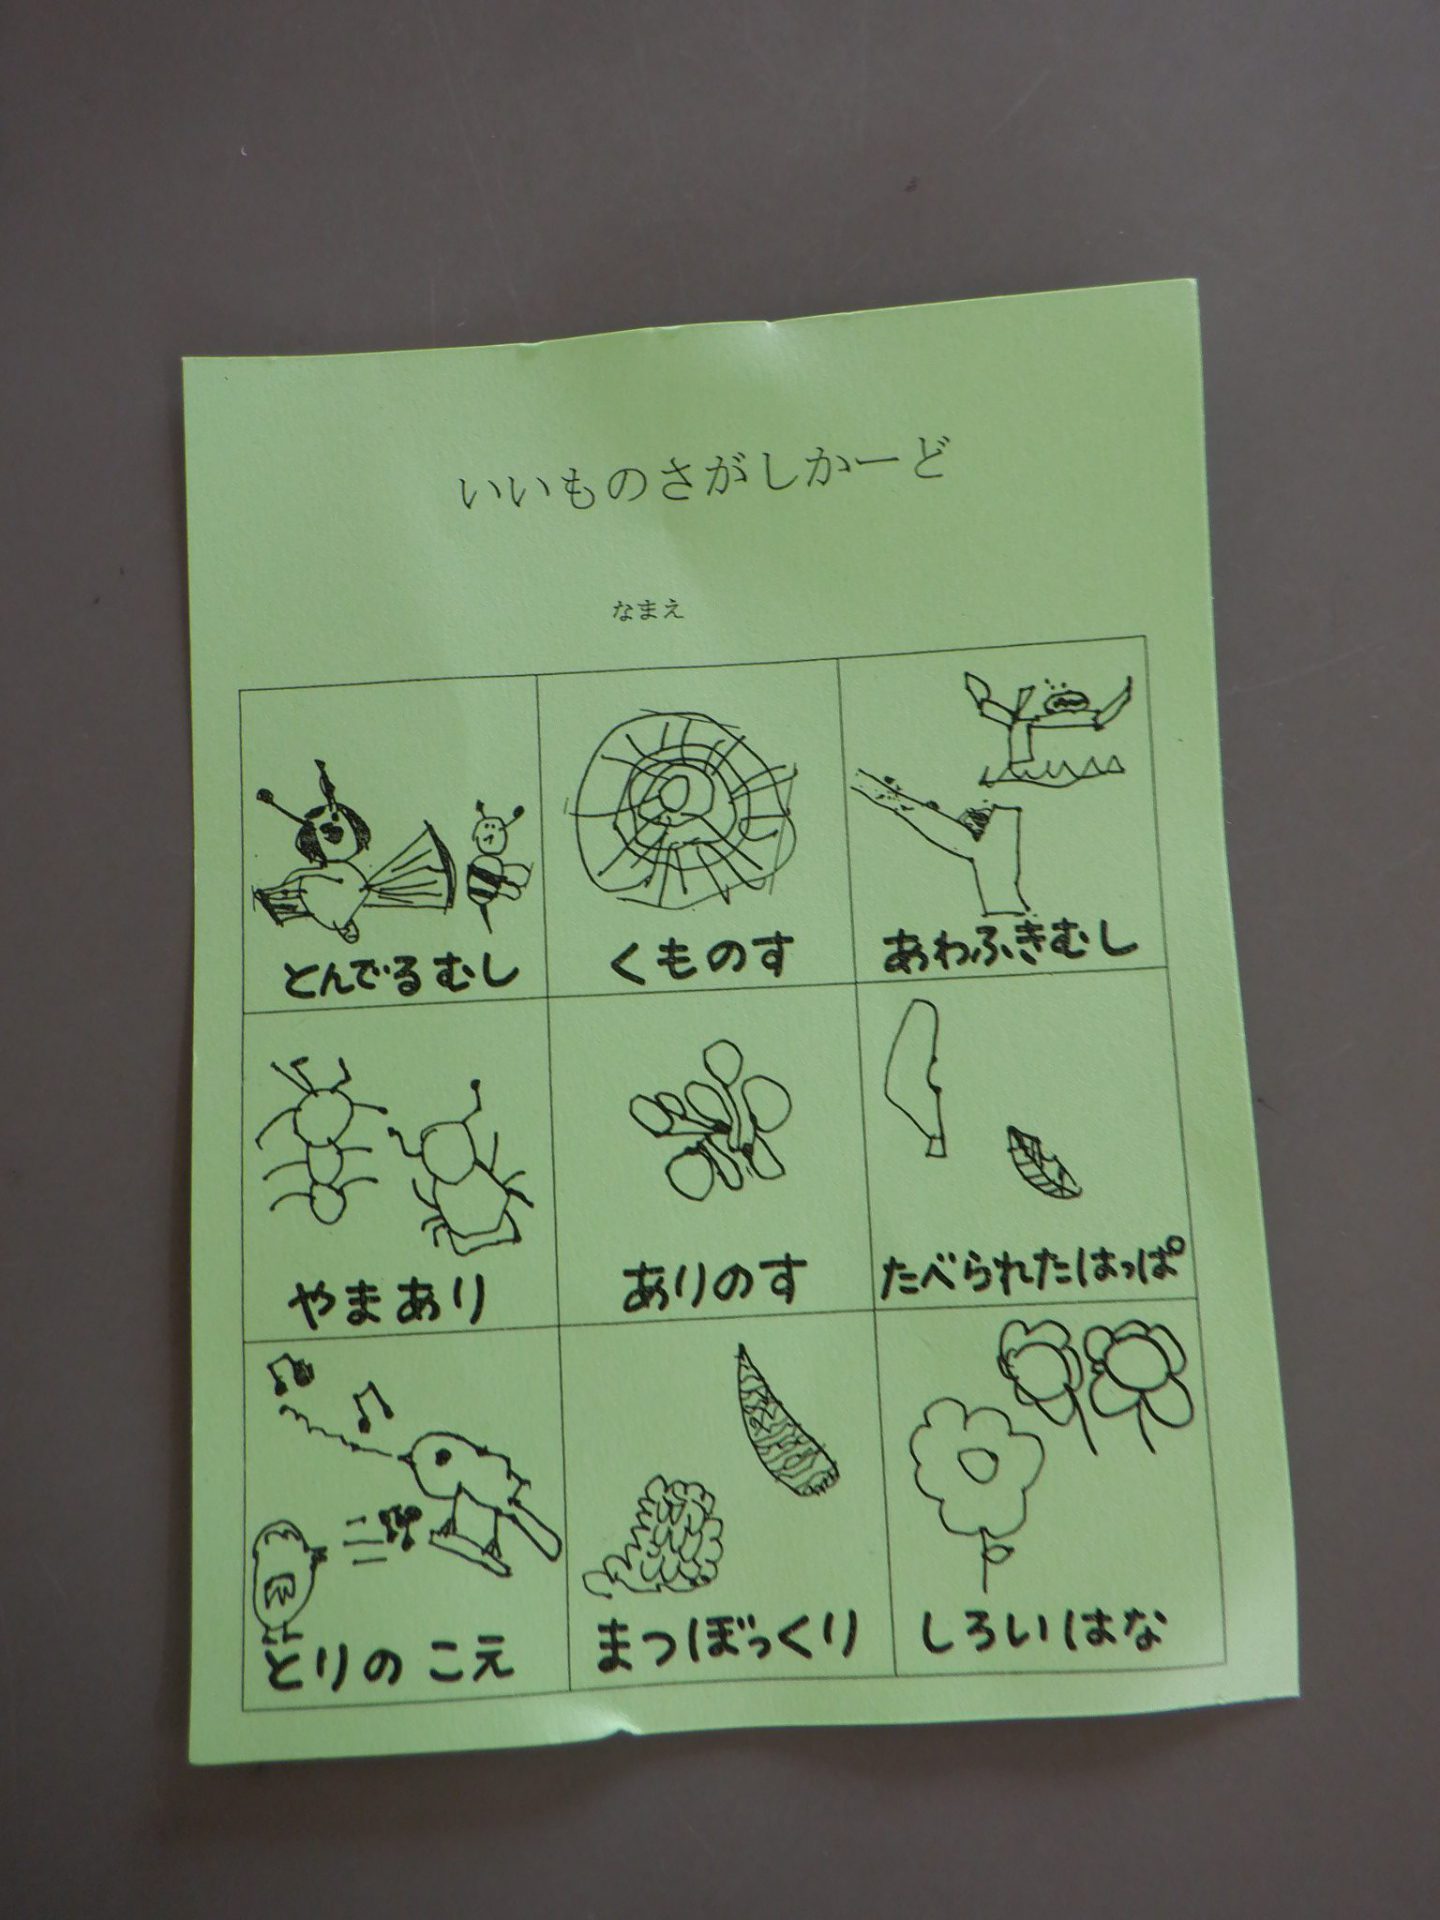 いいものさがしかーど
なまえ
とんでるむし
くものす
あわふきむし
やまあり
ありのす
たべられたはっぱ
とりのこえ
まつぼっくり
しろいはな